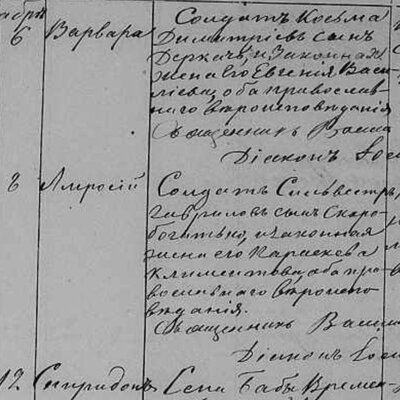 6 Варвара Солдатъ Косьма
Димитріевъ сынъ
Деркачъ, и законная
жена его Евгенія Васи-
ліева, оба православ-
наго вѣроисповѣданія
Священникъ
Діаконъ
8 Солдатъ Сильвестръ
Гавриловъ сынъ Скоро-
богатько, и законная
жена его Параскева
Климентова, оба пра-
вославнаго вѣроиспо-
вѣданія.
Священникъ
Діаконъ
12 Спиридонъ Села Бабы Кремен-